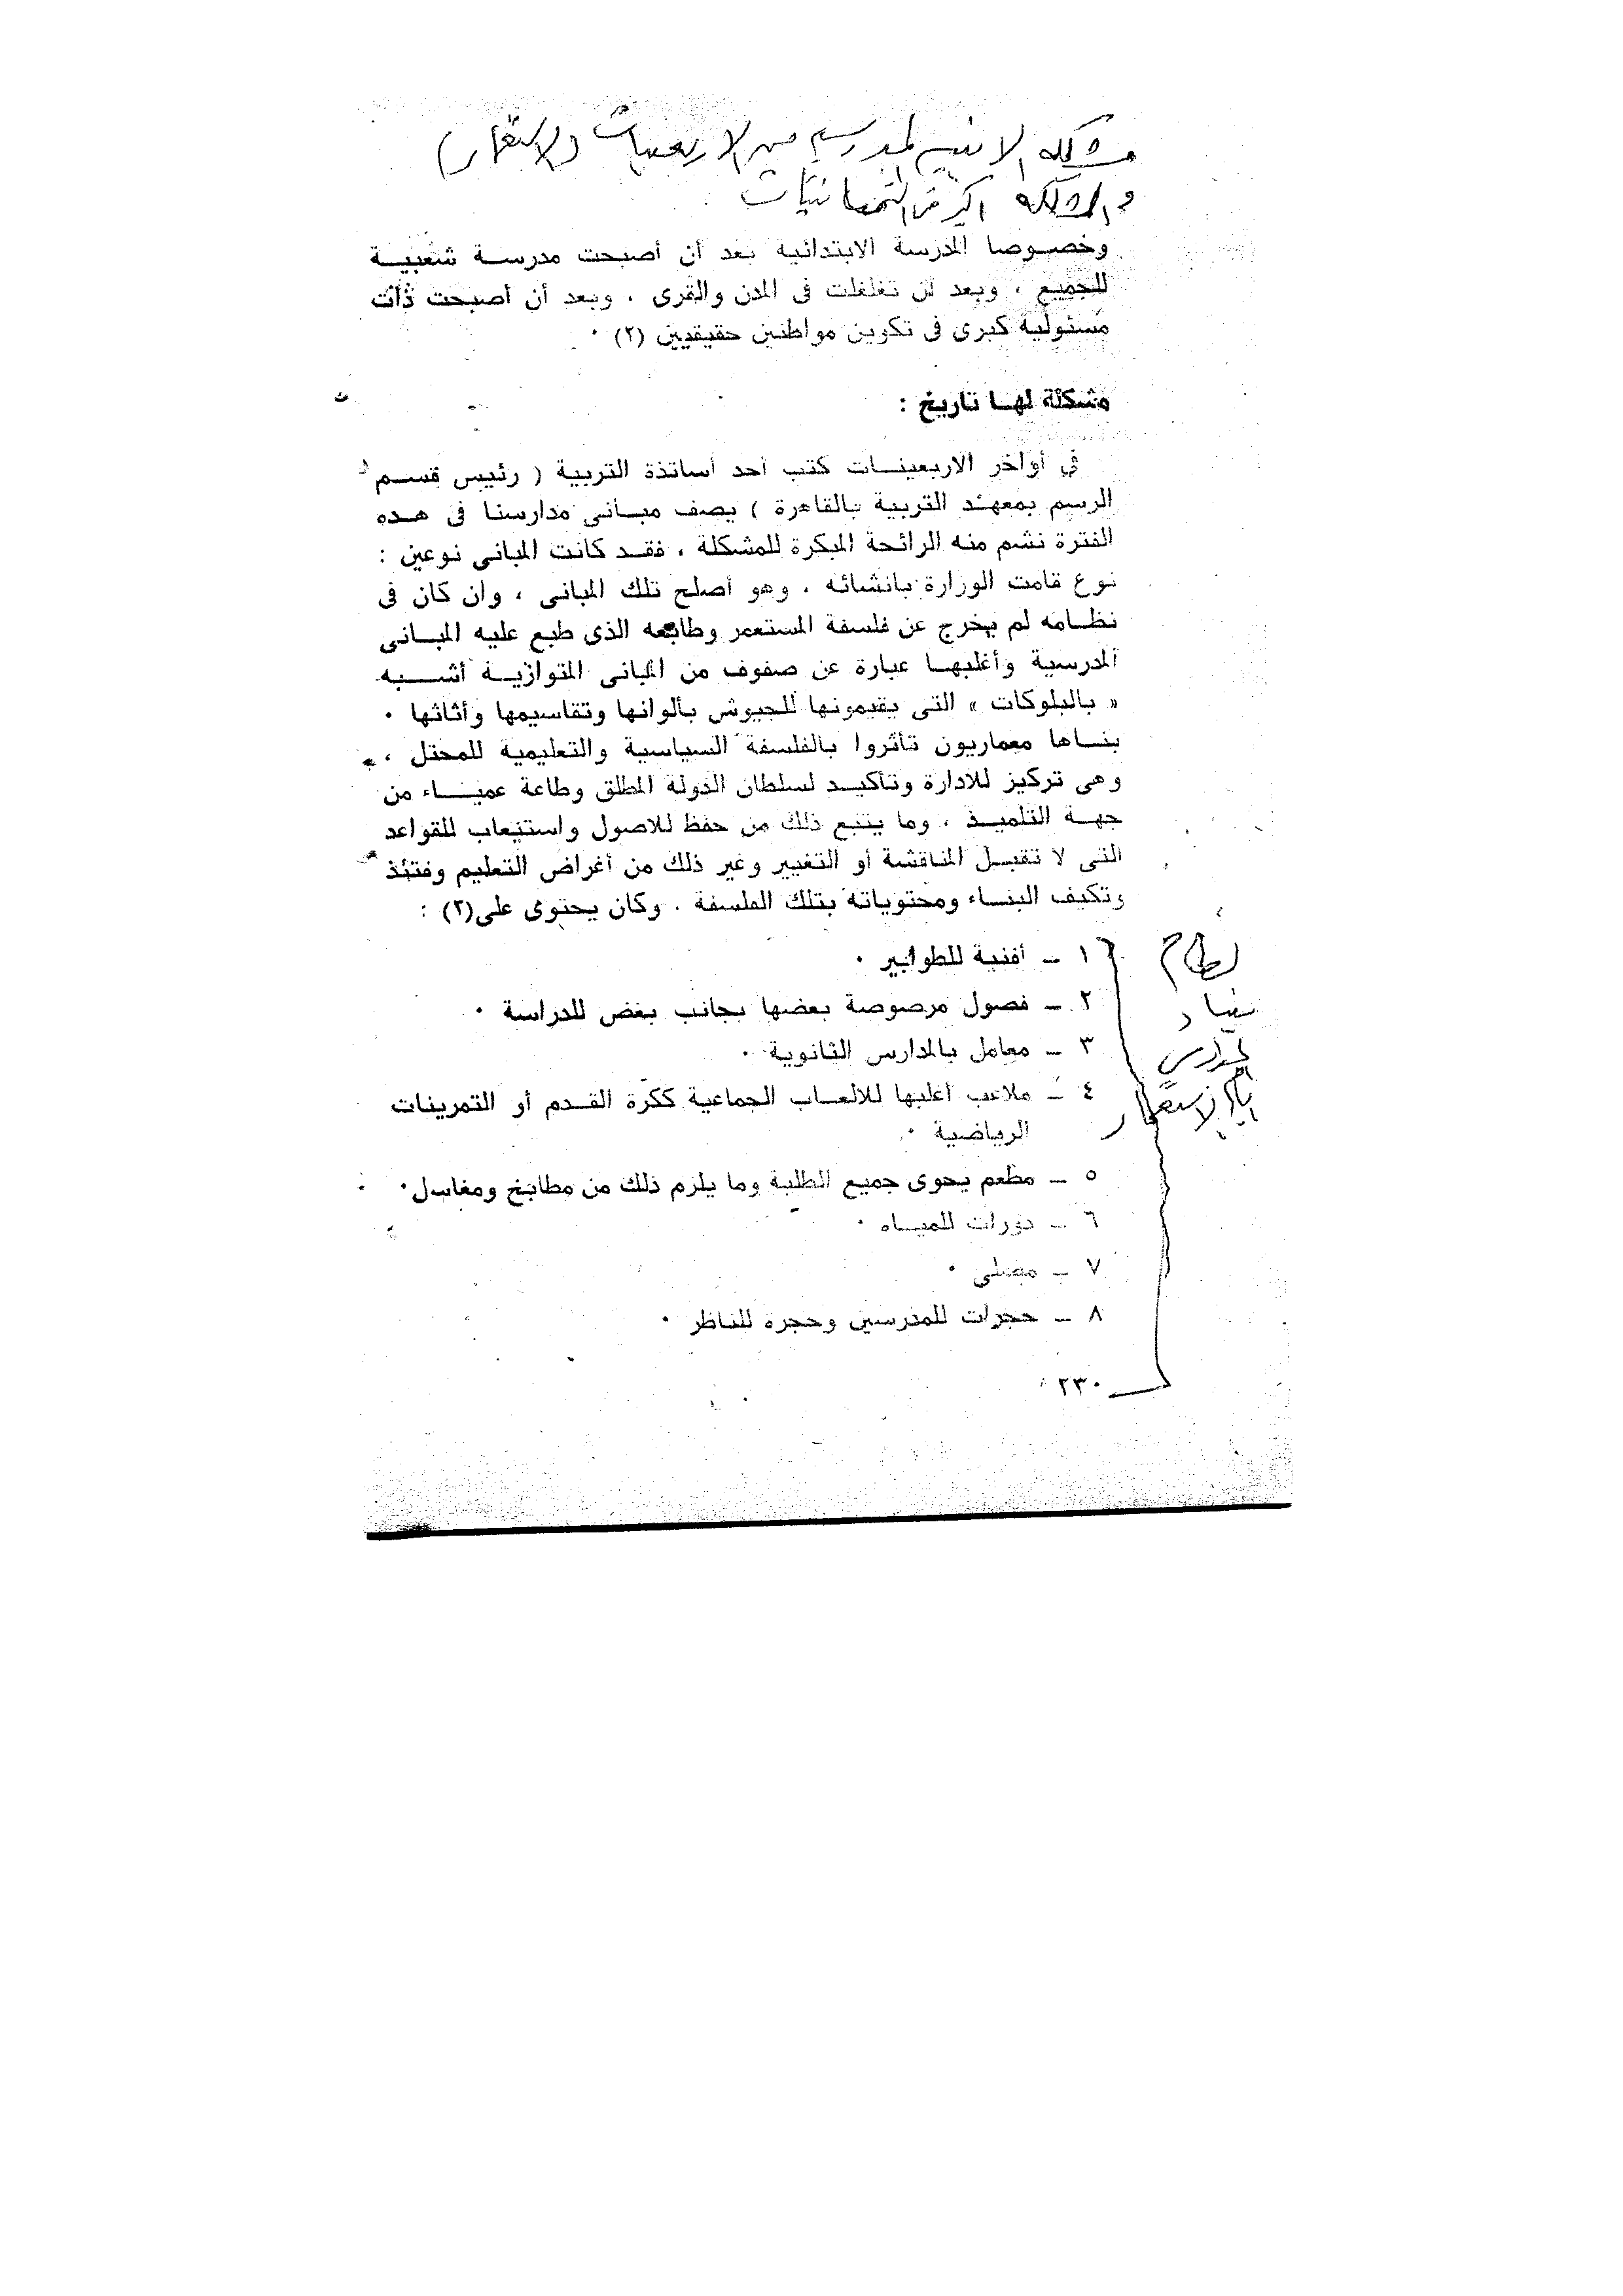 مشكلة الابنية المدرسية من الاربعينيات (الاستعمار)
والمشكلة اكبر فى الثمانينيات
وخصوصا المدرسة الابتدائية بعد أن أصبحت مدرسة شعبية
للجميع ، وبعد أن تغلغلت فى المدن والقرى ، وبعد أن أصبحت ذات
مسئولية كبرى فى تكوين مواطنين حقيقيين (٢) ٠
مشكلة لها تاريخ :
في أواخر الاربعينات كتب أحد أساتذة التربية ( رئيس قسم
الرسم بمعهد التربية بالقاهرة ) يصف مبانى مدارسنا فى هذه
الفترة نشم منه الرائحة المبكرة للمشكلة ، فقد كانت المبانى نوعين :
نوع قامت الوزارة بانشائه ، وهو أصلح تلك المبانى ، وان كان فى
نظامه لم يخرج عن فلسفة المستعمر وطابعه الذى طبع عليه المبانى
المدرسية وأغلبها عبارة عن صفوف من المبانى المتوازية أشبه
« بالبلوكات » التى يقيمونها للجيوش بألوانها وتقاسيمها وأثاثها ٠
بناها معماريون تأثروا بالفلسفة السياسية والتعليمية للمحتل ،
وهى تركيز للادارة وتأكيد لسلطان الدولة المطلق وطاعة عمياء من
جهة التلميذ ، وما يتبع ذلك من حفظ للاصول واستيعاب للقواعد
التى لا تقبل المناقشة أو التغيير وغير ذلك من أغراض التعليم وقتئذ
وتكيف البناء ومحتوياته بتلك الفلسفة . وكان يحتوى على(٢) :
١ – أفنية للطوابير ٠
٢ – فصول مرصوصة بعضها بجانب بعض للدراسة ٠
٣ – معامل بالمدارس الثانوية ٠
٤ – ملاعب أغلبها للالعاب الجماعية ككرة القدم أو التمرينات
الرياضية ٠
٥ – مطعم يحوى جميع الطلبة وما يلزم ذلك من مطابخ ومغاسل ٠
٦ – دورات للمياه ٠
٧ – مصلى ٠
٨ – حجرات للمدرسين وحجرة للناظر ٠
نظام
بناء
المدارس
أيام الاستعمار
٢٣٠